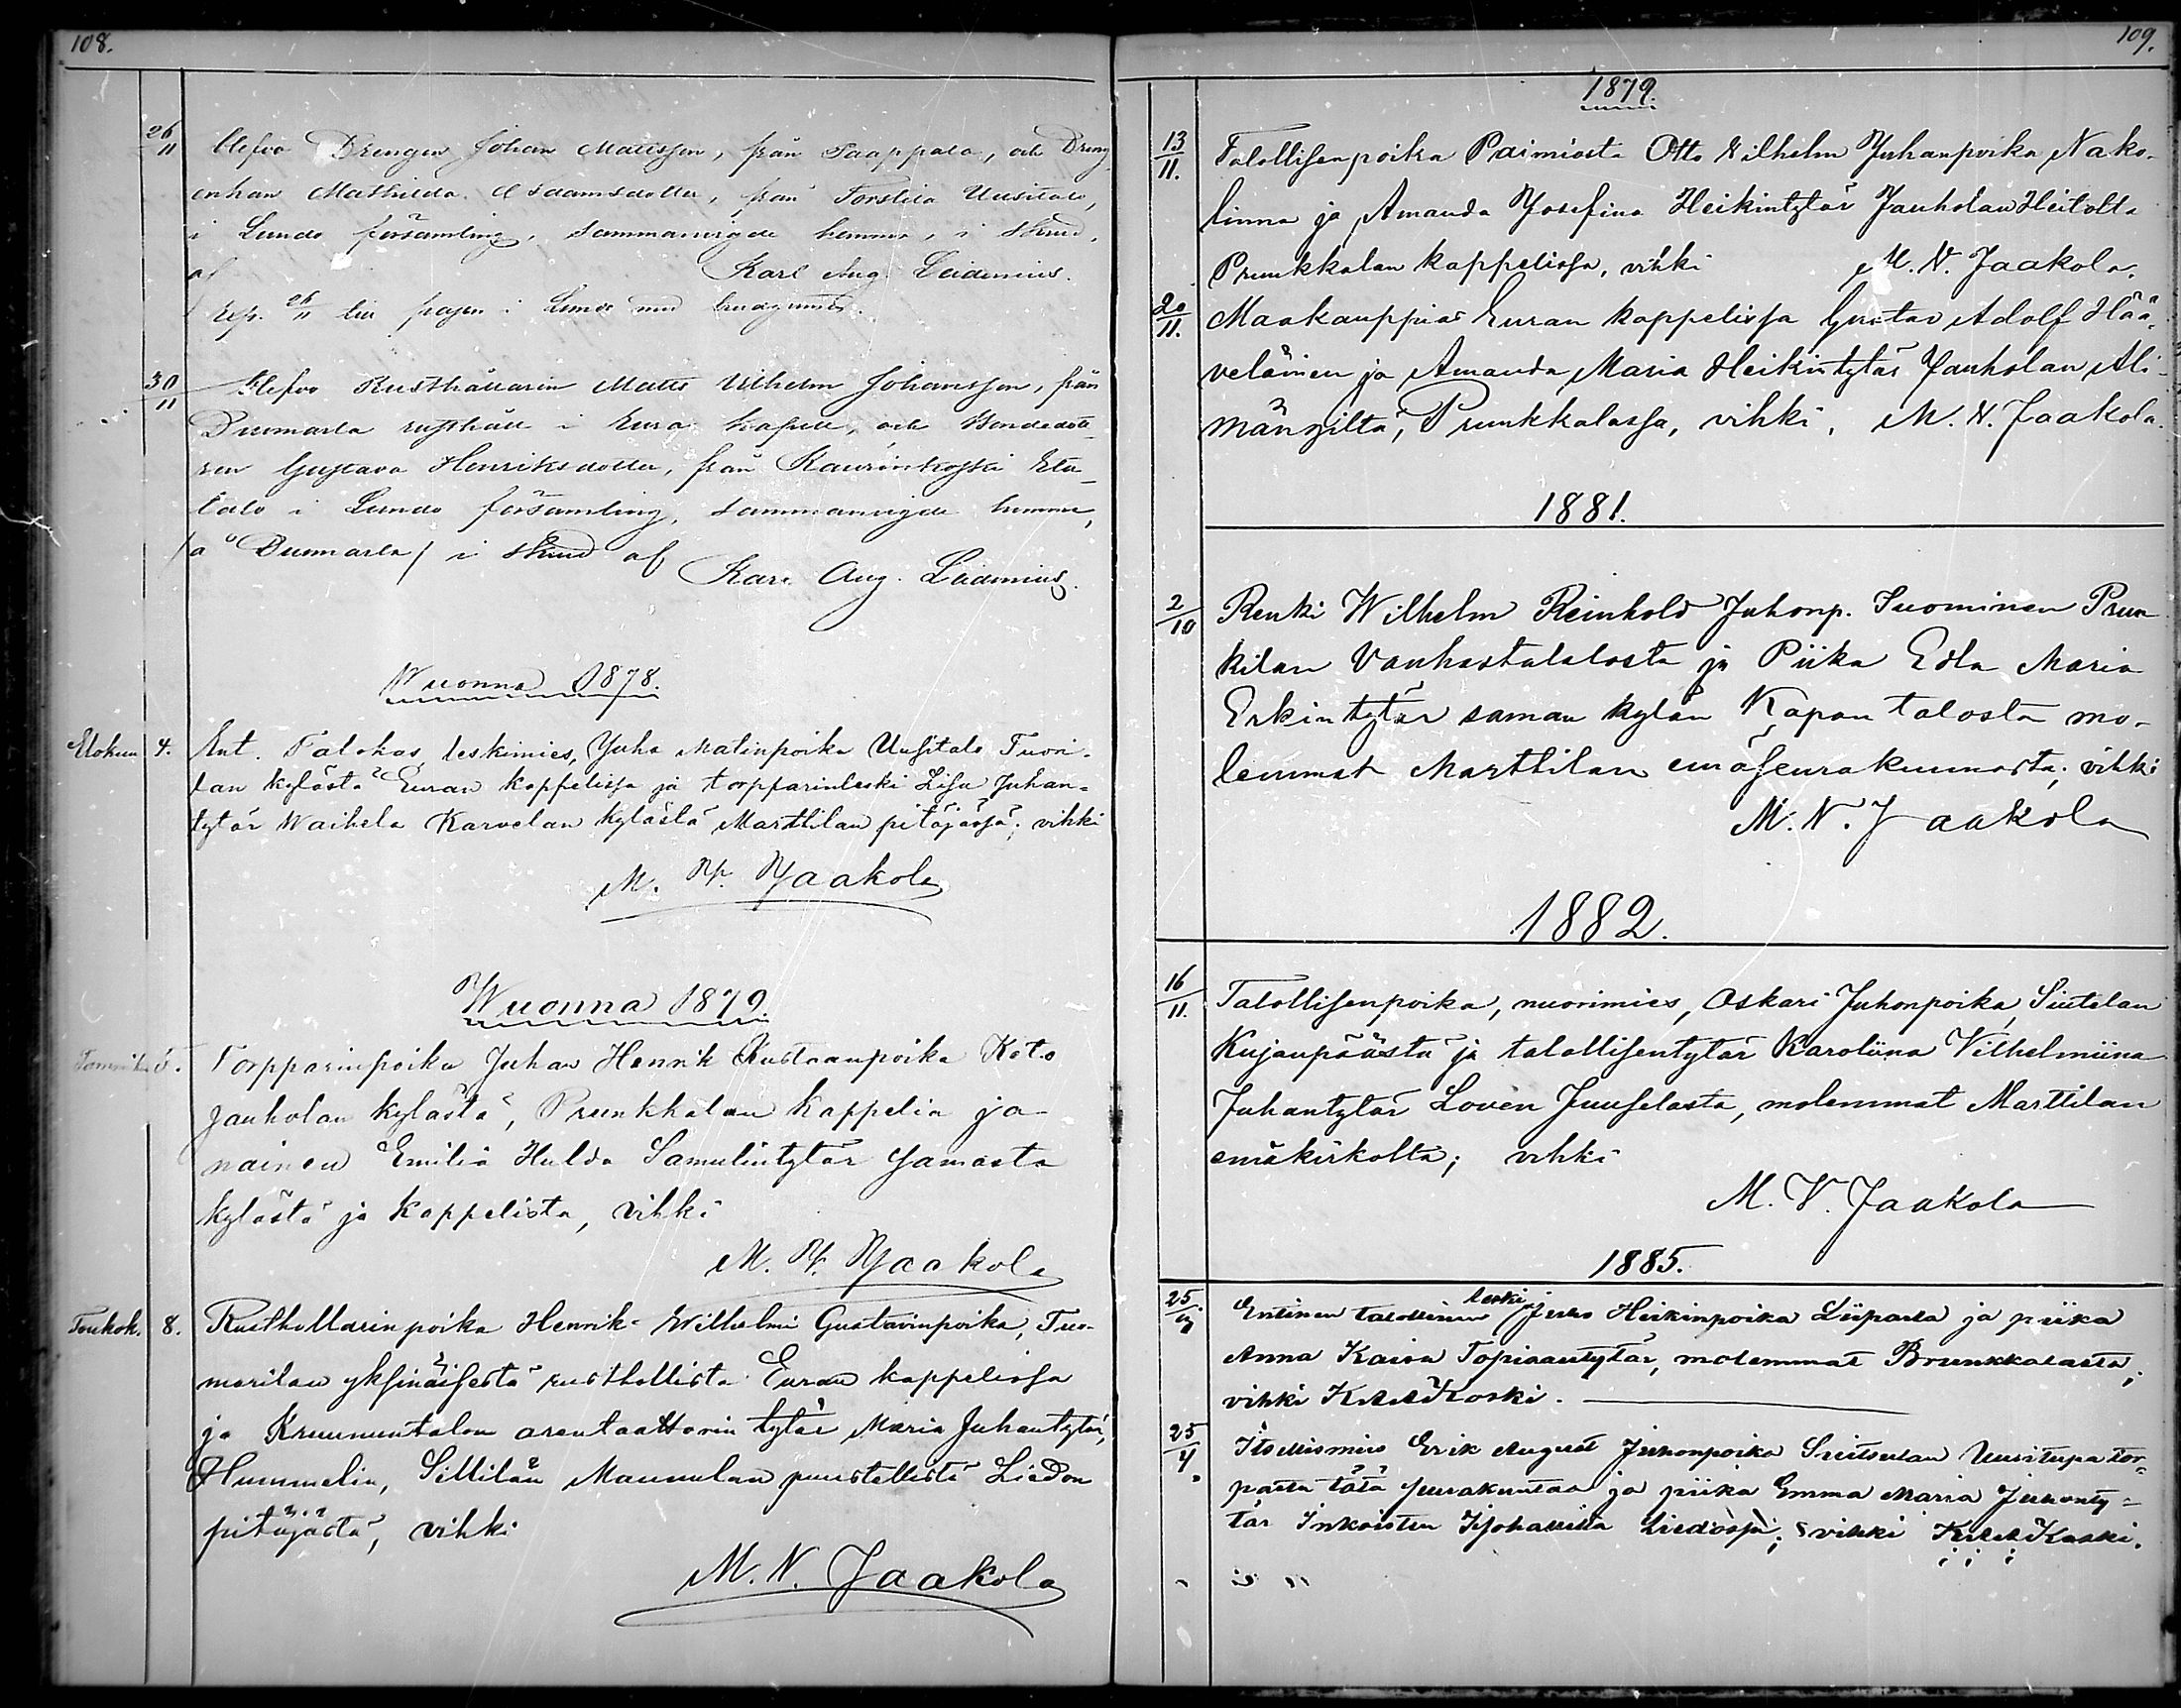 108.
26/11 Blefvo Drengen Johan Mattsson, från Paappala, och Dreng
enkan Mathilda Adamsdotter, från Torstila Uusitalo,
i Lundo församling, sammanvigde hemma, i
af Karl Aug. Leidenius.
26/11 till pigen i Lundo med
30/11 Blefvo Rusthållarin Matts Wilhelm Johansson, från
Duumarla rusthåll i Eura kapell, och Bondedott-
ren Gustava Henriksdotter, från Kaurinkoski Eta-
talo i Lundo församling, sammanvigde hemma,
/å Duumarla/ i af
Karl Aug. Leidenius.
Wuonna 1878.
Elokuu 4. Ent. Talokas, leskimies, Juha Matinpoika Uusitalo Tuori-
lan kylästä Euran kappelissa ja torpparinleski Lisa Juhan-
tytär Waihela Karvelan kylästä Marttilan pitäjässä; vihki
M. N. Jaakola
Wuonna 1879.
5. Torpparinpoika Juhan Henrik Kustaanpoika Koto
Jauholan kylästä, Prunkkalan kappelia ja
nainen Emilia Hulda Samulintytär samasta
kylästä ja kappelista, vihki
M. N. Jaakola
Toukok. 8. Rusthollarinpoika Henrik Wilhelmi Gustavinpoika, Tuo-
marilan yksinäisestä rusthollista Euran kappelissa
ja Kruununtalon arentaattorin tytär Maria Juhantytär,
Hummelin, Sillilän Maunulan puustellista Liedon
pitäjästä, vihki
M. N. Jaakola
109.
1879.
13/11. Talollisenpoika Paimiosta Otto Wilhelm Juhanpoika Nako-
linna ja Amanda Josefina Heikintytär Jauholan Heitolta
Prunkkalan kappelissa, vihki M. N. Jaakola.
20/11. Maakauppias Euran kappelissa Gustav Adolf Hää-
veläinen ja Amanda Maria Heikintytär Jauholan Ali-
mängiltä, Prunkkalassa, vihki, M. N. Jaakola.
1881.
2/10 Renki Wilhelm Reinhold Juhonp. Suominen Prun-
kilan Vanhastatalosta ja Piika Edla Maria
Erkintytär saman kylän Kapon talosta mo-
lemmat Marttilan emäseurakunnasta; vihki
M. N. Jaakola
1882.
16/11. Talollisenpoika, nuorimies, Oskari Juhonpoika, Siutelan
Kujanpäästä ja talollisentytär Karoliina Vilhelmiina
Juhantytär Loven Juuselasta, molemmat Marttilan
emäkirkolta; vihki
M. V. Jaakola
1885.
25/ Entinen talollinen leski Juho Heikinpoika Liiparla ja piika
Anna Kaisa Topiaantytär, molemmat Prunkkalasta;
vihki Koski.
25/4 Itsellismies Erik August Juhonpoika Uusitupa tor-
pasta tätä seurakuntaa ja piika Emma Maria Juhonty-
tär Inkoisten Liedossa; vihki Koski.